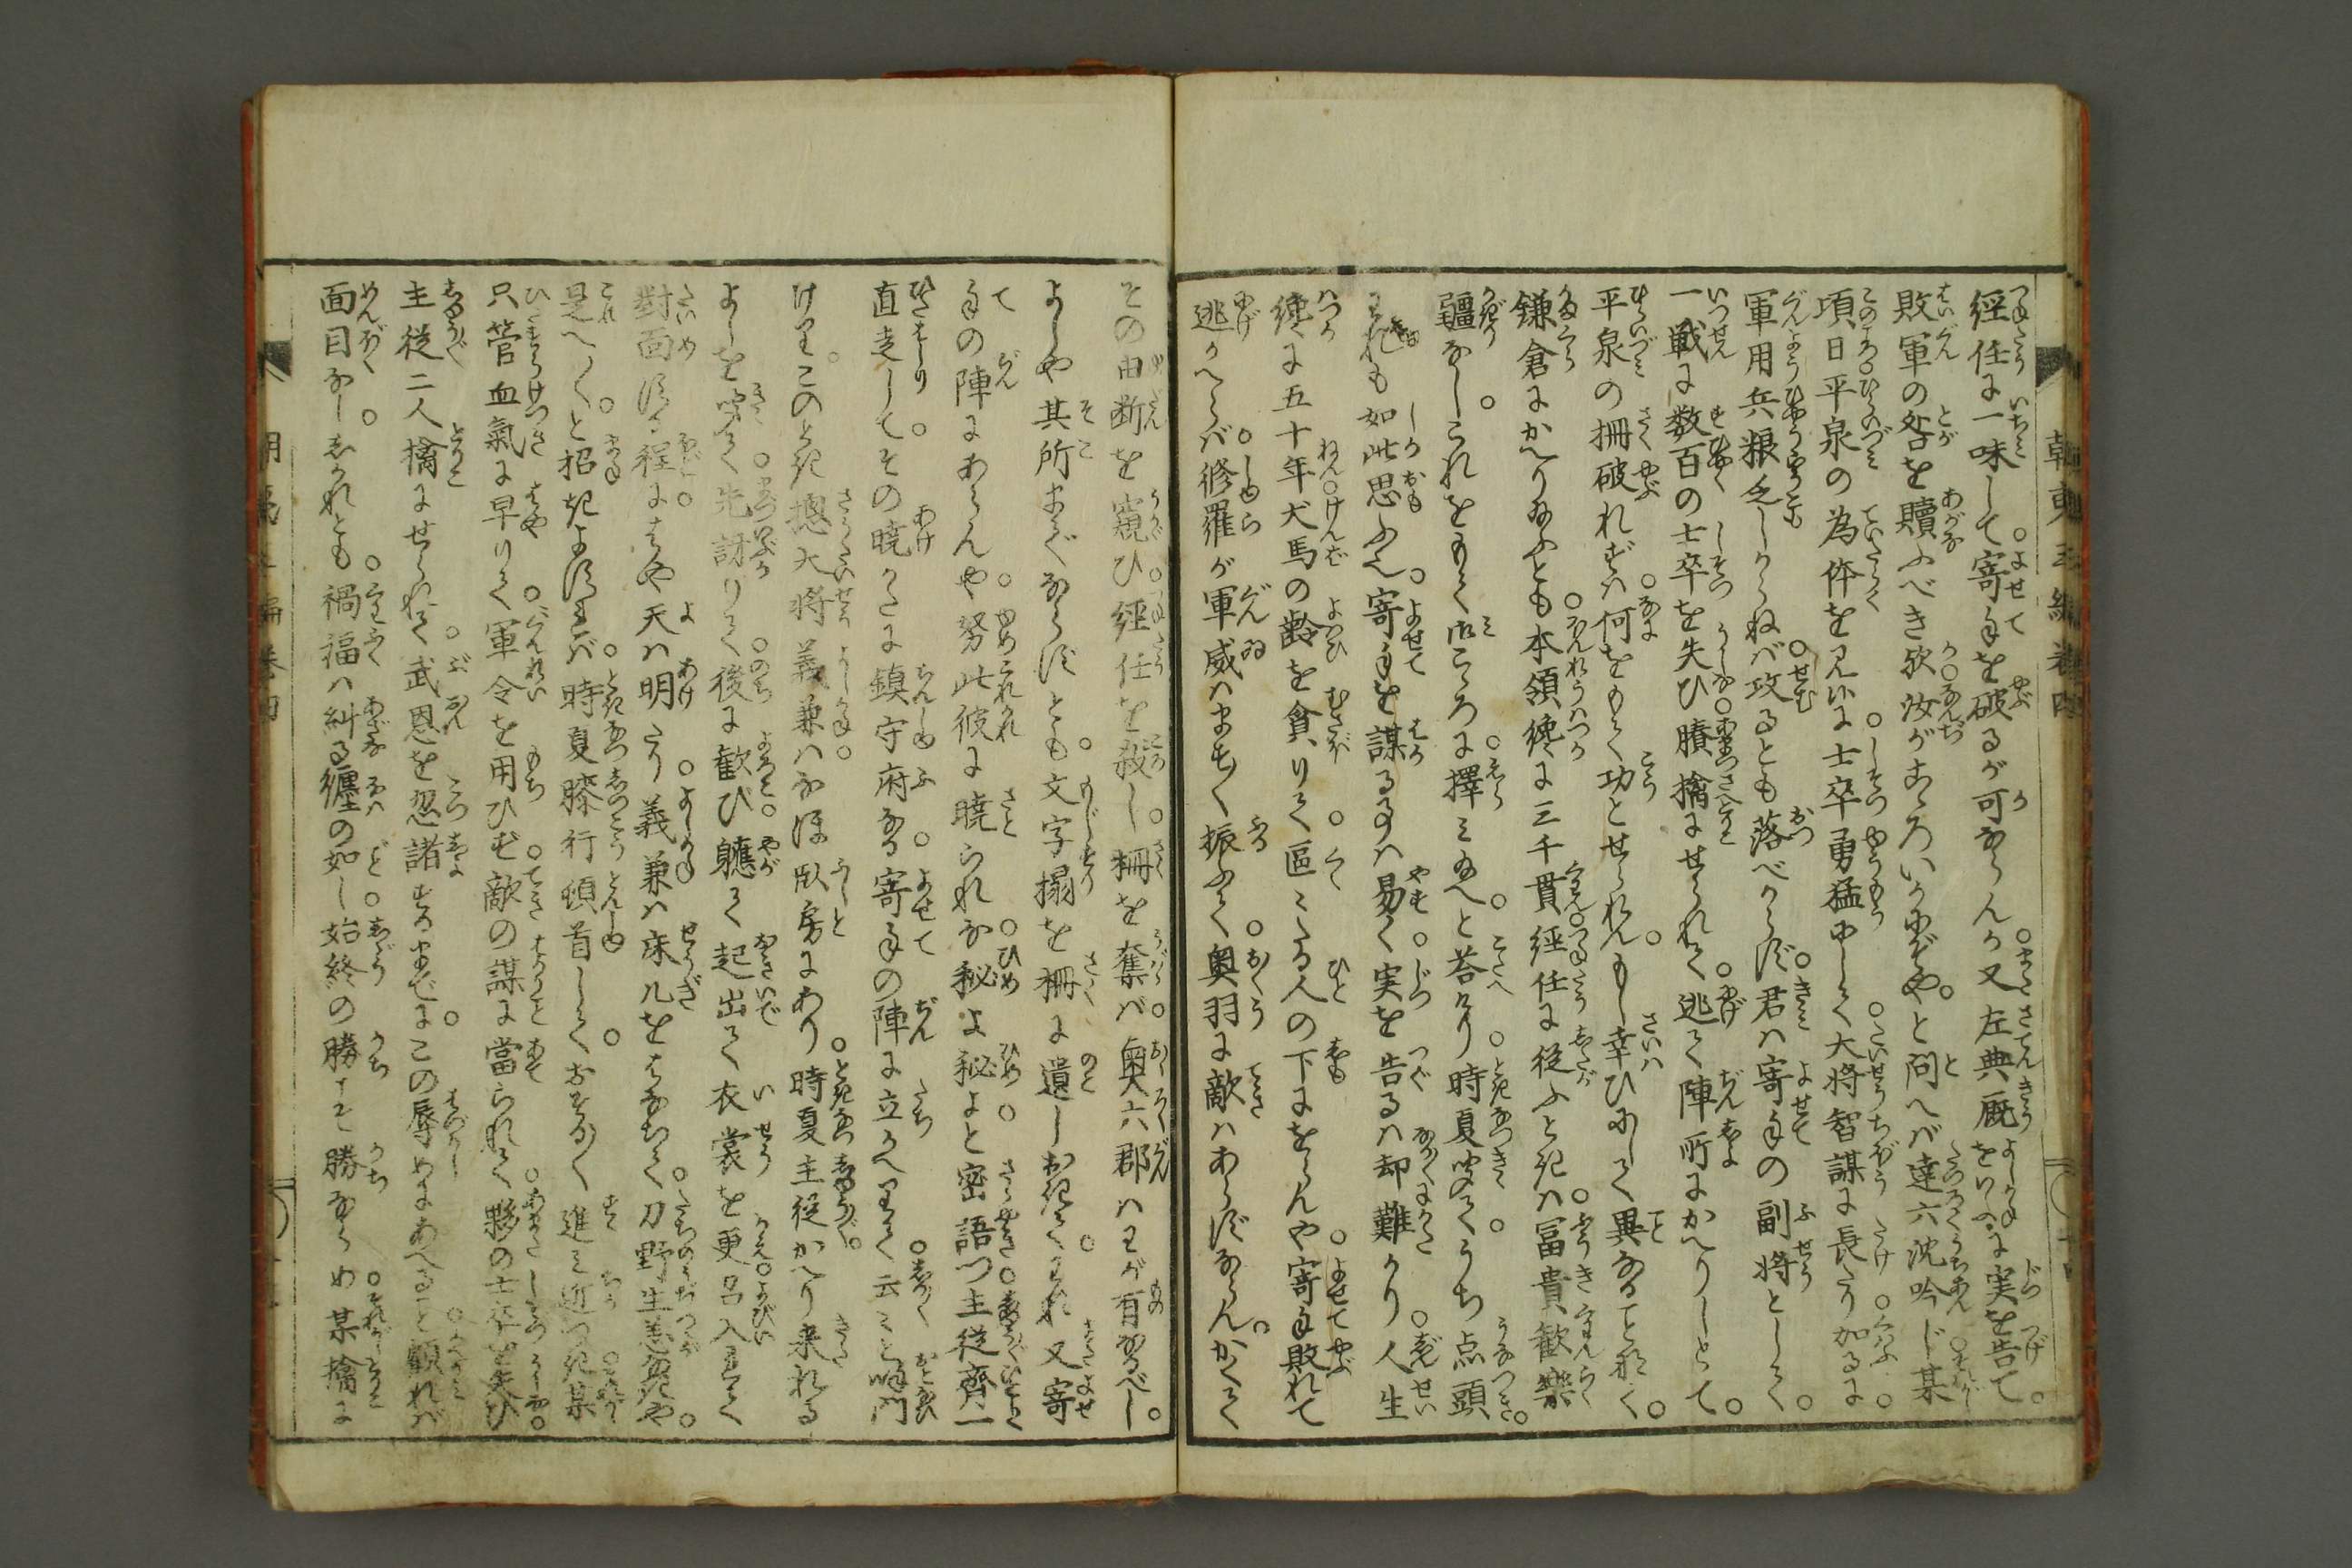 經任に一味して寄手を破るが可ならんか又左典厩をいふに実を告て
敗軍の咎を贖ふべき歟汝がこゝろいかにぞやと問へバ達六沈吟じ某
頃日平泉の為体を見るに士卒勇猛にして大将智謀に長たり加るに
軍用兵粮乏しからねバ攻るとも落べからず君ハ寄手の副将として
一戰に数百の士卒を失ひ臢擒にせられて逃て陣所にかへりしとて
平泉の柵破れずハ何をもて功とせられんもし幸ひにして異なることなく
鎌倉にかへり給ふとも本領纔に三千貫經任に従ふときハ冨貴歓樂
疆なしこれをもて御こゝろに擇ミ給へと荅けり時夏聞てうち点頭
われも如此思ふ也寄手を謀るハ易く実を告るハ却難かり人生
纔に五十年犬馬の齢を貪りて區々たる人の下にをらんや寄手敗れて
逃かへらバ修羅が軍威ハます〳〵振ふて奥羽に敵ハあらずならんかくて
その由断を窺ひ經任を殺し柵を奪ハバ奥六郡ハわが有なるべし
よしや其所まで­ならずとも文字摺を柵に遺しおきてわれ又寄
手の陣にあらんや努此彼に暁られな秘よ秘よと密語つ主従齊一
直走してその暁かたに鎮守府なる寄手の陣に立かへりて云々と鳴門
けりこのとき揔大将義兼ハなほ臥房にあり時夏主従かへり来れる
よしを聞て先訝りて後に歓び軈て起出て衣裳を更呂入れて
對面する程にはや天ハ明たり義兼ハ床几をはなちて刀野生恙なきや
是へ〳〵と招きよすれバ時夏膝行頓首しておそる〳〵進ミ近つき某
只管血氣に早りて軍令を用ひず敵の謀に當られて夥の士卒を失ひ
主従二人擒にせられて武恩を忽諸するまでにこの辱めにあへること顧れバ
面目なししかれとも禍福ハ糾る纏の如し始終の勝こそ勝ならめ某擒に